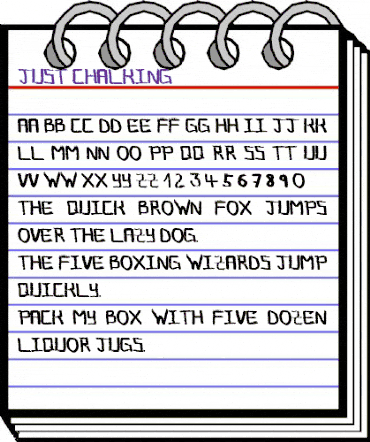 JUST CHALKING
AA BB CC DD EE FF GG HH II JJ KK
LL MM NN OO PP QQ RR SS TT UU
VV WW XX YY ZZ 1 2 3 4 5 6 7 8 9 0
THE QUICK BROWN FOX JUMPS
OVER THE LAZY DOG.
THE FIVE BOXING WIZARDS JUMP
QUICKLY.
PACK MY BOX WITH FIVE DOZEN
LIQUOR JUGS.